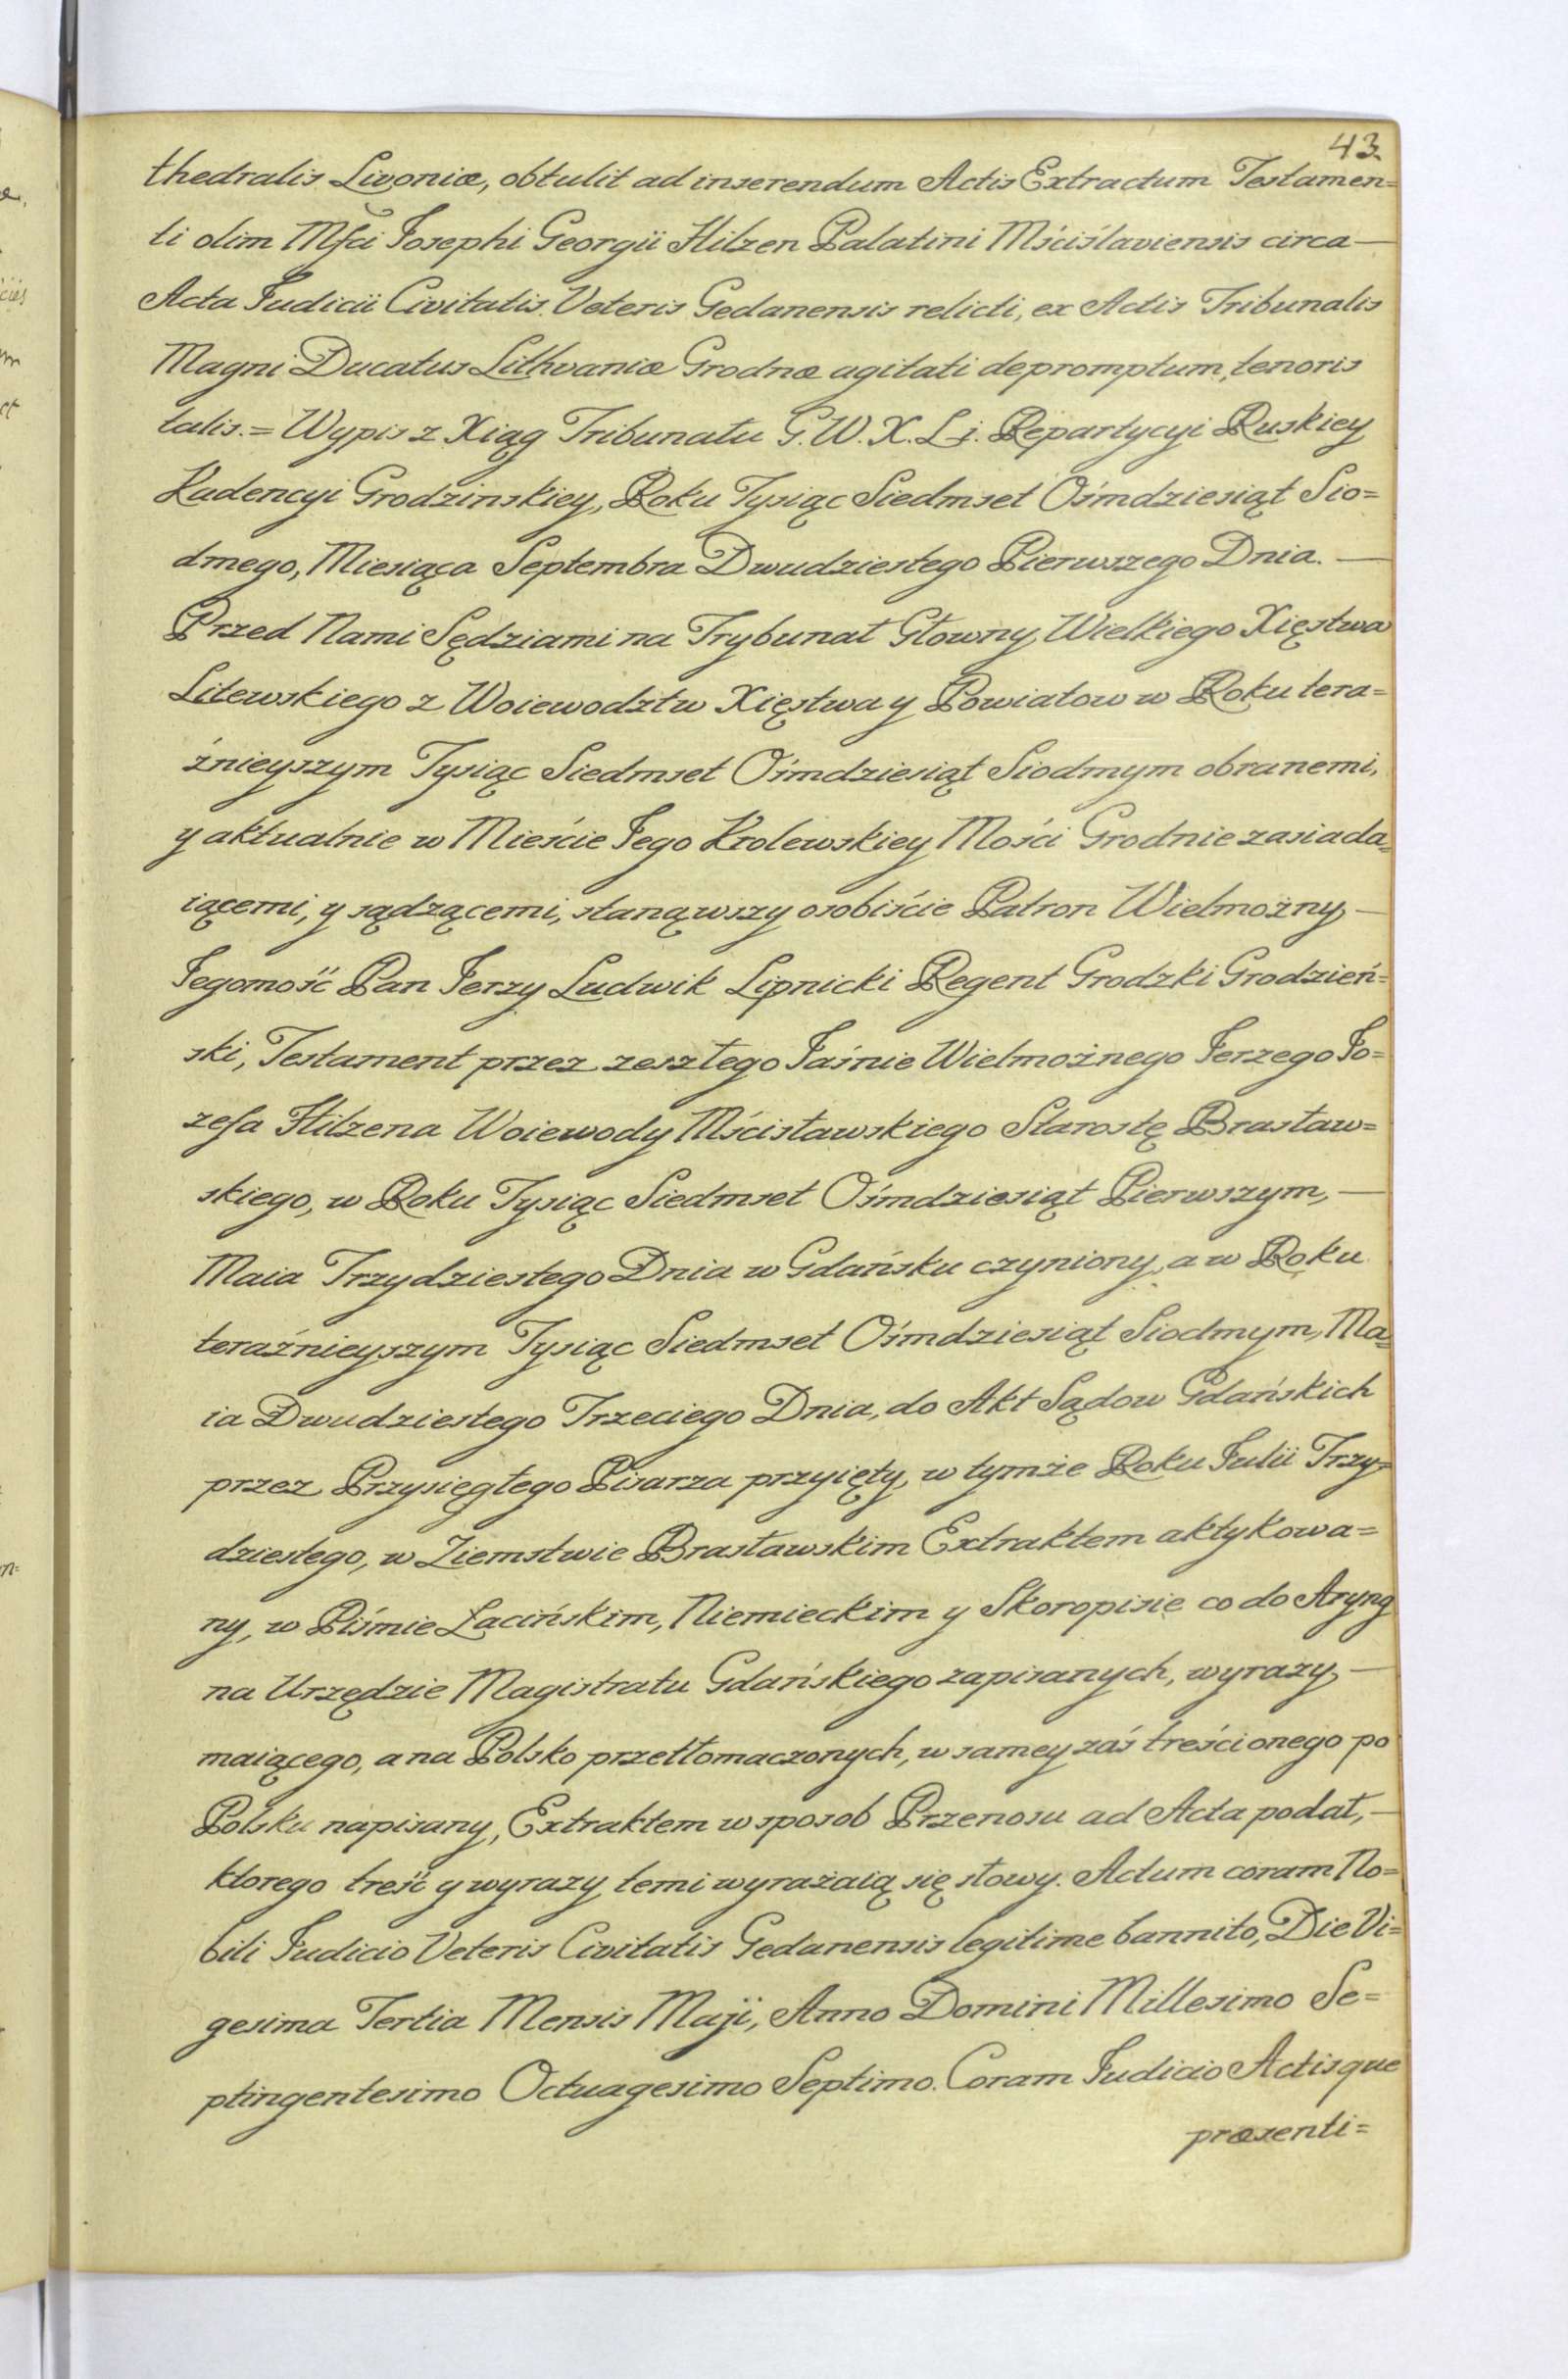 43.
thedralis Livoniæ, obtulit ad inserendum Actis Extractum Testamen=
ti olim Mfci Josephi Georgii Hilzen Palatini Mściślaviensis circa —
Acta Judicii Civitatis Veteris Gedanensis relicti, ex Actis Tribunalis
Magni Ducatus Lithvaniæ Grodnæ agitati depromptum, tenoris
talis. = Wypis z Xiąg Tribunatu G. W. X. Li. Repartycyi Ruskiey
Kadencyi Grodzinskiey, Roku Tysiąc Siedmset Ośmdziesiąt Sio=
dmego, Miesiąca Septembra Dwudziestego Pierwszego Dnia. —
Przed Nami Sędziami na Trybunał Głowny Wielkiego Xięstwa
Litewskiego z Woiewodztw Xięstwa y Powiatow w Roku tera=
źnieyszym Tysiąc Siedmset Ośmdziesiąt Siodmym obranemi,
y aktualnie w Mieście Jego Krolewskiey Mości Grodnie zasiada=
iącemi, y sądzącemi, stanąwszy osobiście Patron Wielmożny —
Jegomość Pan Jerzy Ludwik Lipnicki Regent Grodzki Grodzień=
ski, Testament przez zeszłego Jaśnie Wielmożnego Jerzego Jo=
zefa Hilzena Woiewody Mścisławskiego Starostę Brasław=
skiego, w Roku Tysiąc Siedmset Ośmdziesiąt Pierwszym, —
Maia Trzydziestego Dnia w Gdańsku czyniony, a w Roku
teraźnieyszym Tysiąc Siedmset Ośmdziesiąt Siodmym, Ma=
ia Dwudziestego Trzeciego Dnia, do Akt Sądow Gdańskich
przez Przysięgłego Pisarza przyięty, w tymże Roku Julii Trzy=
dziestego, w Ziemstwie Brasławskim Extraktem aktykowa=
ny, w Piśmie Łacińskim, Niemieckim y Skoropisie co do Aryng
na Urzędzie Magistratu Gdańskiego zapisanych, wyrazy —
maiącego, a na Polsko przetłomaczonych, w samey zaś treści onego po
Polsku napisany, Extraktem w sposob Przenosu ad Acta podał, —
ktorego treść y wyrazy temi wyrażaią się słowy. Actum coram No=
bili Judicio Veteris Civitatis Gedanensis legitime bannito, Die Vi=
gesima Tertia Mensis Maji, Anno Domini Millesimo Se=
ptingentesimo Octuagesimo Septimo. Coram Judicio Actisque
præsenti=